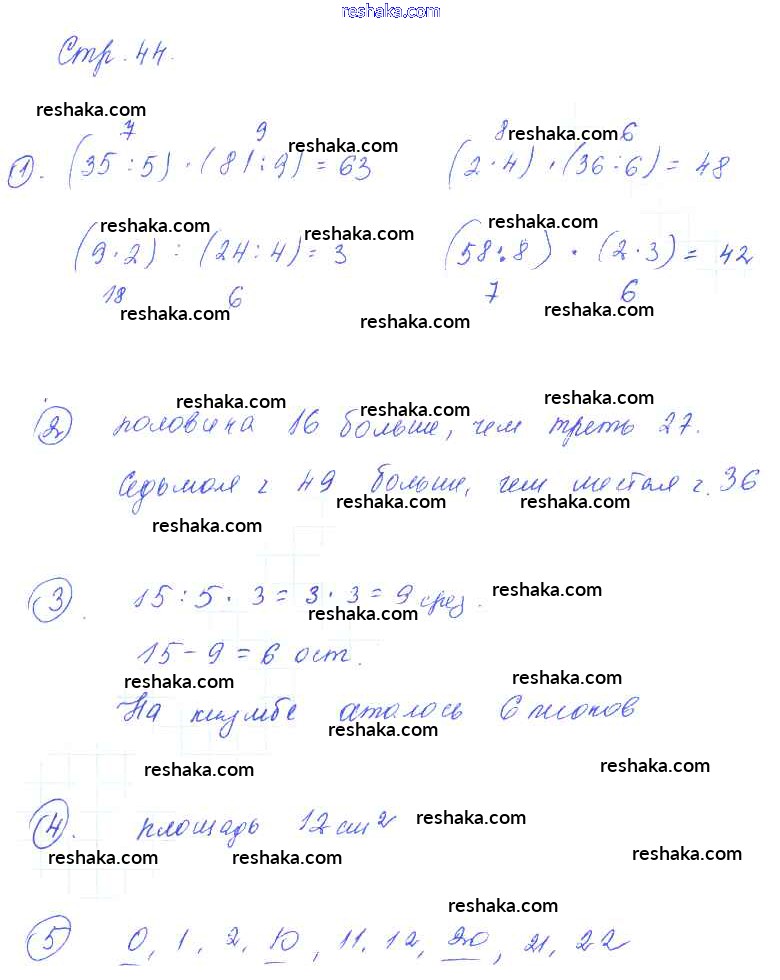 reshaka.com
Стр. 44.
reshaka.com
7 9 reshaka.com 8 reshaka.com 6
1. (35 : 5) · (81 : 9) = 63 (2 · 4) · (36 : 6) = 48
reshaka.com reshaka.com reshaka.com
(9 · 2) : (24 : 4) = 3 (58 : 8) · (2 · 3) = 42
18 6 7 6
reshaka.com reshaka.com reshaka.com
reshaka.com reshaka.com reshaka.com
2 половина 16 больше, чем треть 27.
Седьмая ч 49 больше, чем шестая ч. 36
reshaka.com reshaka.com reshaka.com
reshaka.com
3. 15 : 5 · 3 = 3 · 3 = 9 срез.
reshaka.com
15 - 9 = 6 ост.
reshaka.com reshaka.com
На клумбе аталось 6 пионов
reshaka.com
reshaka.com reshaka.com
4. площадь 12 см² reshaka.com
reshaka.com reshaka.com reshaka.com
reshaka.com
5 0, 1, 2, 10, 11, 12, 20, 21, 22